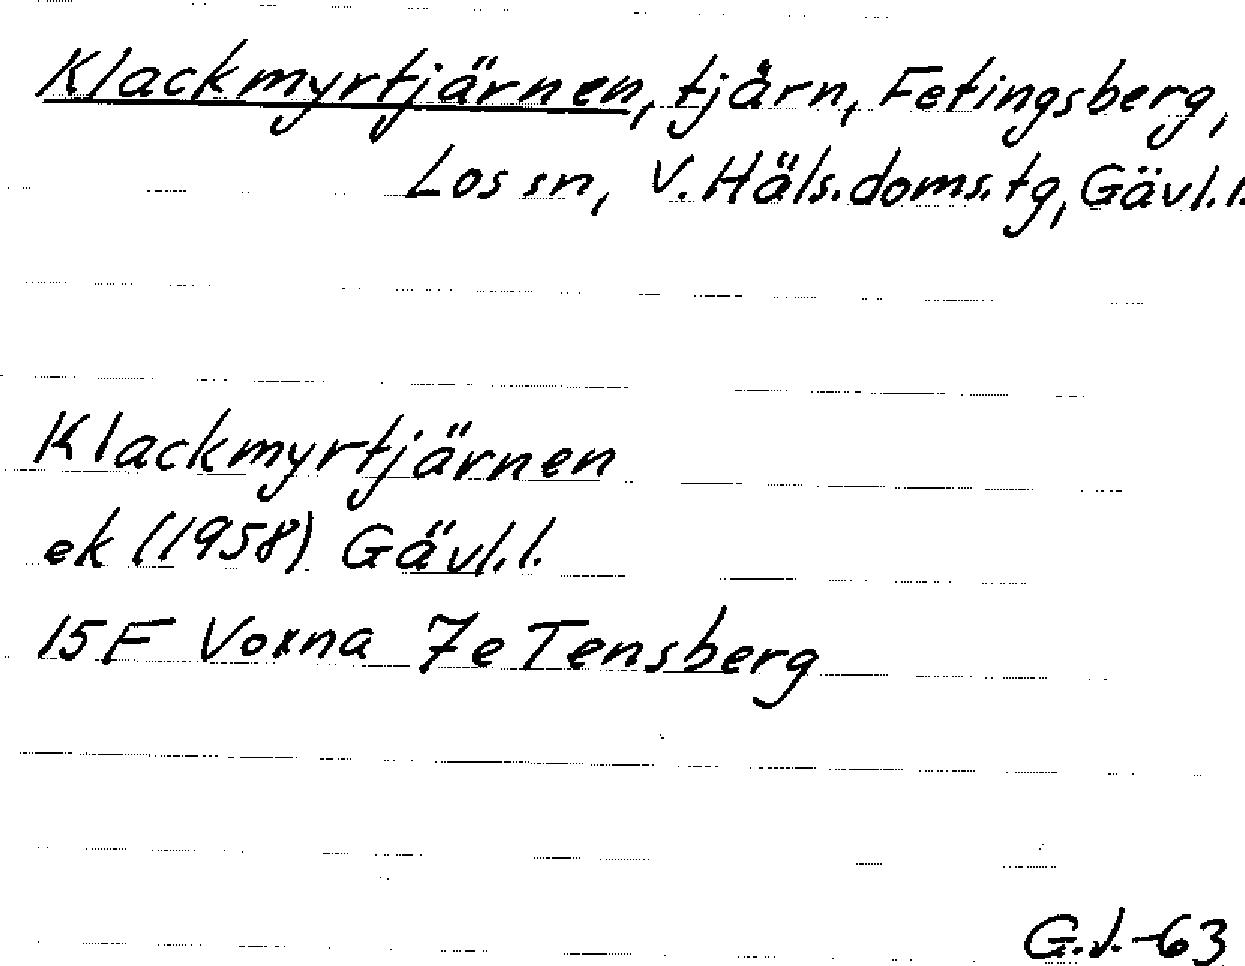 Klackmyrtjärnen, tjärn, Fetingsberg,
Los sn, V. Häls. doms. tg, Gävl. l.
Klackmyrtjärnen
ek (1958) Gävl. l.
15F Voxna 7e Tensberg
G.J.-63